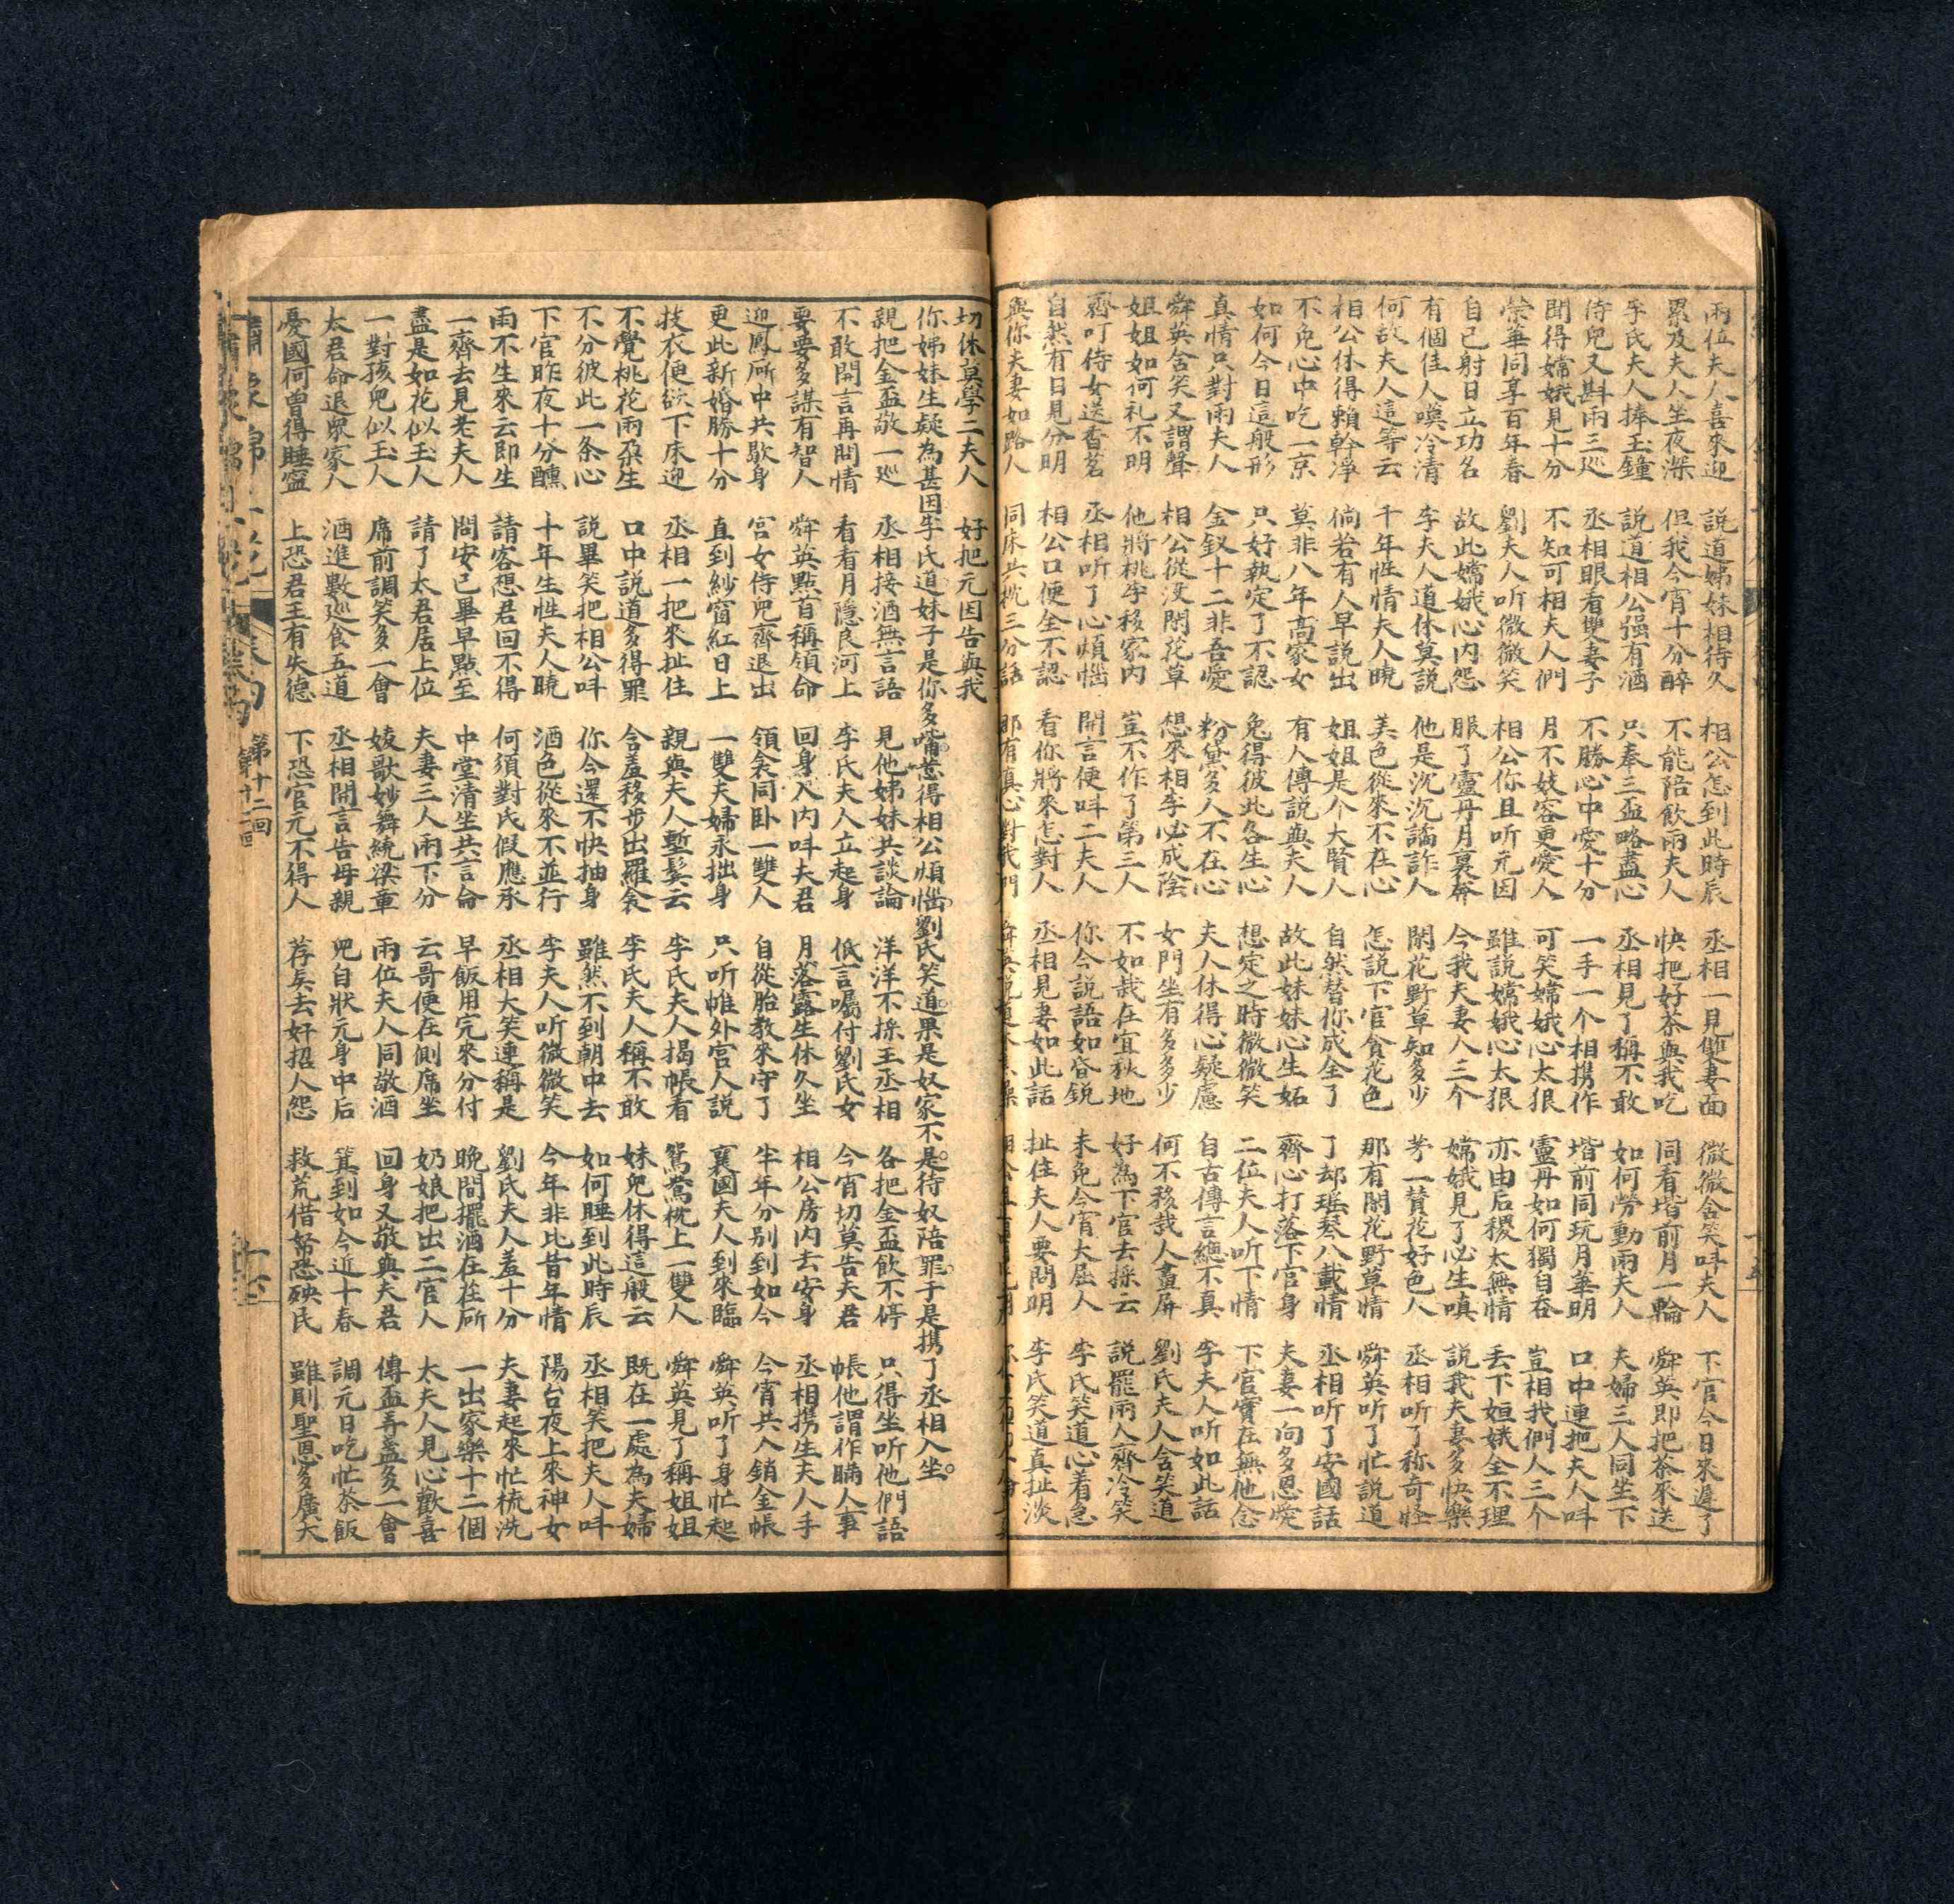 兩位夫人喜來迎 說道姊妹相待久 相公怎到此時辰 丞相一見雙妻面 微微含笑呌夫人 下官今日來遲了
累及夫人坐夜深 但我今宵十分醉 不能陪飲兩夫人 快把好茶與我吃 同看堦前月一輪 舜英即把茶來送
李氏夫人捧玉鐘 說道相公强有酒 只奉三盃略盡心 丞相見了稱不敢 如何勞動兩夫人 夫婦三人同坐下
侍兒又斟兩三巡 丞相眼看雙妻子 不勝心中愛十分 一手一个相携作 堦前同玩月華明 口中連把夫人呌
聞得嫦娥見十分 不知可相夫人們 月不妓容更愛人 可笑嫦娥心太狠 靈丹如何獨自吞 豈相我們人三个
榮華同享百年春 劉夫人听微微笑 相公你且听元因 雖說嫦娥心太狠 亦由后稷太無情 丢下姮娥全不理
自己射日立功名 故此嫦娥心内怨 服了靈丹月裏奔 今我夫妻人三个 嫦娥見了必生嗔 說我夫妻多快樂
有個佳人嘆冷清 李夫人道休莫說 他是沉沉譎詐人 閑花野草知多少 茅一賛花好色人 丞相听了称奇怪
何故夫人這等云 千年性情夫人曉 美色從來不在心 怎說下官貪花色 那有閑花野草情 舜英听了忙說道
相公休得賴幹淨 倘若有人早說出 姐姐是个大賢人 自然替你成全了 了却瑶琴八載情 丞相听了安國話
不免心中吃一京 莫非八年高家女 有人傳說與夫人 故此妹妹心生妬 齊心打落下官身 夫妻一向多恩愛
如何今日這般形 只好執定了不認 免得彼此各生心 想定之時微微笑 二位夫人听下情 下官實在無他念
真情只對兩夫人 金釵十二非吾愛 粉黛多人不在心 夫人休得心疑慮 自古傳言總不真 李夫人听如此話
舜英含笑又謂聲 相公從没閑花草 想來相李必成陰 女門坐有多多少 何不移栽人畫屏 劉氏夫人含笑道
姐姐如何礼不明 他將桃李移家内 豈不作了第三人 不如栽在宜秋地 好為下官去採云 說罷兩人齊冷笑
齊叮侍女送香茗 丞相听了心煩惱 開言便呌二夫人 你今說語如昏鋭 未免今宵大屈人 李氏笑道心着急
自然有日見分明 相公口便全不認 看你將來怎對人 丞相見妻如此話 扯住夫人要問明 李氏笑道真扯淡
與你夫妻如路人 同床共枕三分話 那有真心對我門
切休莫學二夫人 好把元因告與我
你姊妹生疑為甚因李氏道妹子是你多嘴惹得相公煩惱劉氏笑道果是奴家不是待奴陪罪于是携了丞相入坐
親把金盃敬一巡 丞相接酒無言語 見他姊妹共談論 洋洋不採王丞相 各把金盃飲不停 只得坐听他們語
不敢開言再問情 看看月隱良河上 李氏夫人立起身 低言囑付劉氏女 今宵切莫告夫君 帳他謂作瞞人事
要要多謀有智人 舜英點首稱領命 回身入内呌夫君 月落露生休久坐 相公房内去安身 丞相携生夫人手
迎鳳厢中共歇身 宮女侍兒齊退出 領衾同卧一雙人 自從胎教來守了 半年分别到如今 今宵共入銷金帳
更此新婚勝十分 直到紗窗紅日上 一雙夫婦永拙身 只听帷外宮人說 襄國夫人到來臨 舜英听了身忙起
技衣便欲下床迎 丞相一把來扯住 親與夫人墊髪云 李氏夫人揭帳看 鴛鴦枕上一雙人 舜英見了稱姐姐
不覺桃花兩朶生 口中說道多得罪 含羞移步出羅衾 李氏夫人稱不敢 妹兒休得這般云 既在一處為夫婦
不分彼此一条心 說畢笑把相公呌 你今還不快抽身 雖然不到朝中去 如何睡到此時辰 丞相笑把夫人呌
下官昨夜十分醺 十年生性夫人曉 酒色從來不並行 李夫人听微微笑 今年非比昔年情 陽台夜上來神女
雨不生來云即生 請客想君回不得 何須對氏假應承 丞相大笑連稱是 劉氏夫人羞十分 夫妻起來忙梳洗
一齊去見老夫人 問安已畢早點至 中堂清坐共言命 早飯用完來分付 晚間擺酒在荘厛 一出家樂十二個
盡是如花似玉人 請了太君居上位 夫妻三人兩下分 云哥便在側席坐 奶娘把出二官人 太夫人見心歡喜
一對孩兒似玉人 席前調笑多一會 妓歌妙舞繞梁車 兩位夫人同敬酒 回身又敬與夫君 傳盃弄盞多一會
太君命退衆家人 酒進數巡食五道 丞相開言告母親 兒自狀元身中后 算到如今近十春 調元日吃忙茶飯
憂國何曾得睡寧 上恐君王有失德 下恐官元不得人 荐矣去奸招人怨 救荒借帑恐殃民 雖則聖恩多廣大
第十二回